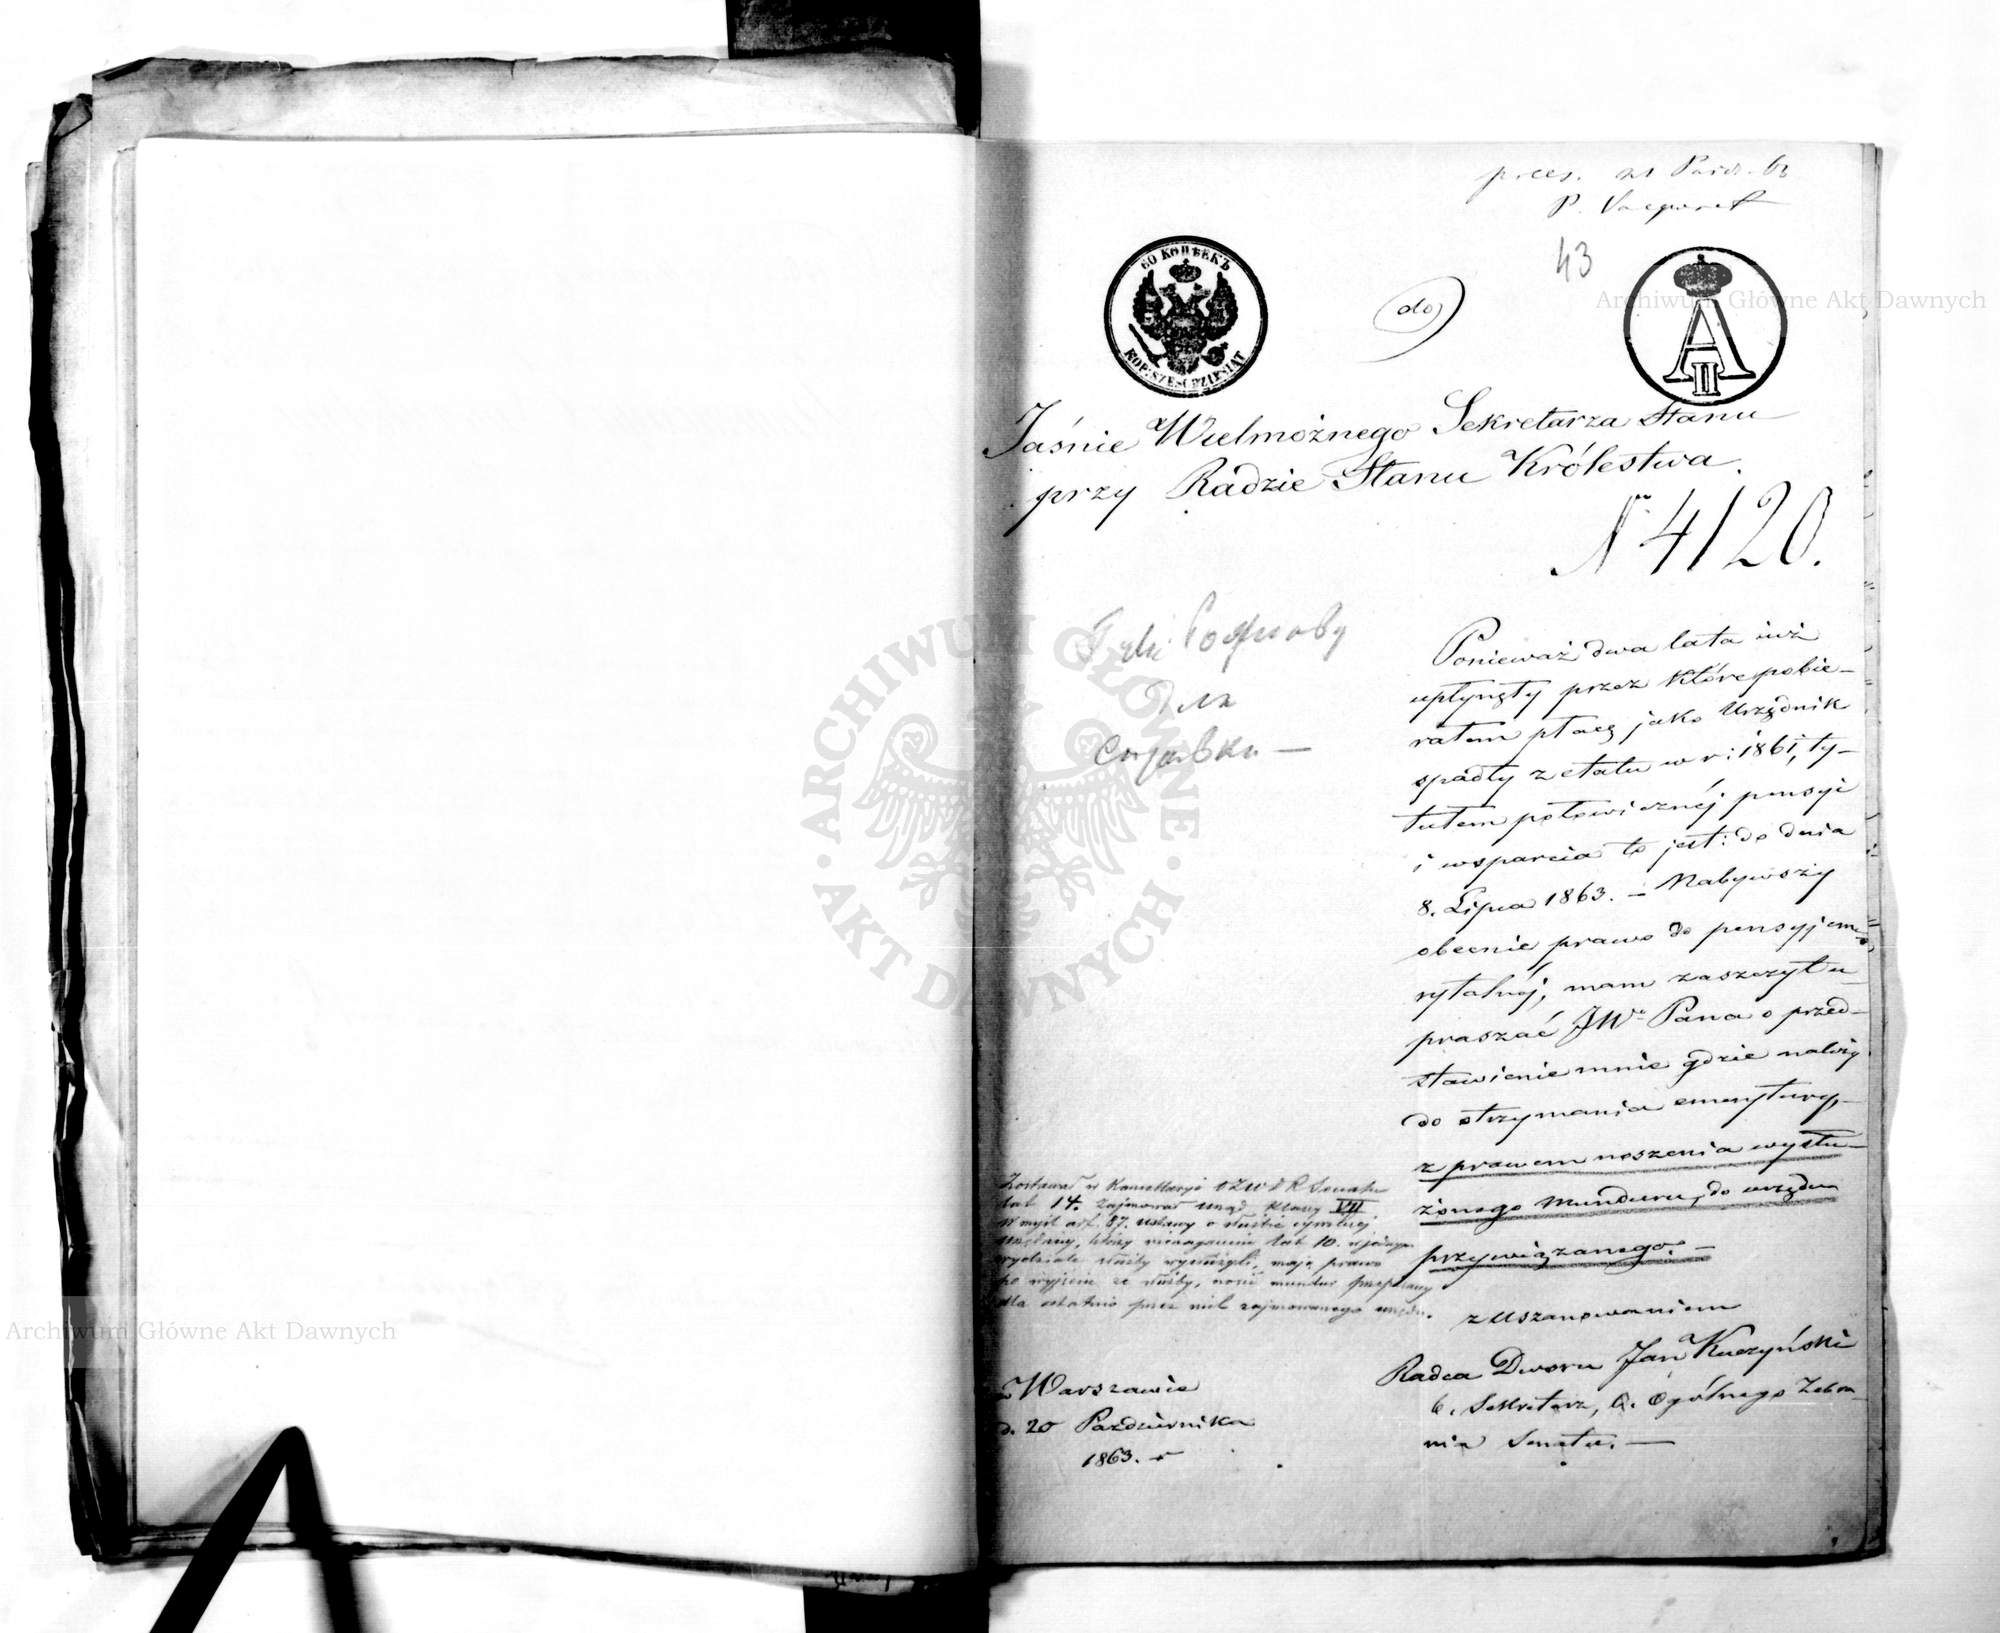 prces. 21 Paźd. 63
43
60 КОПѢЕКЪ
KOP: SZEŚĆDZIESIĄT
do
A II
Jaśnie Wielmożnego Sekretarza Stanu
przy Radzie Stanu Królestwa.
N 4120.
Ponieważ dwa lata iuż
upłynęły przez które pobie-
rałem płacę jako Urzędnik
spadły z etatu w r: 1861, ty-
tułem połowicznéj pensyi
i wsparcia to jest: do dnia
8. Lipca 1863. – Nabywszy
obecnie prawo do pensyj eme-
rytalnéj, mam zaszczyt u-
praszać JWo Pana o przed-
stawienie mnie gdzie należy
do otrzymania emerytury,
z prawem noszenia wysłu-
żonego munduru, do urzędu
przywiązanego. –
z uszanowaniem
Radca Dworu Jan Kuczyński
b. Sekretarz, O. Ogólnego Zebra-
nia Senatu. —
Zostawał w Kancellaryi Senatu
lat 14. Zajmował urząd klassy VII.
W myśl art. 87. ustawy o służbie cywilnej
urzędnicy, którzy nienagannie lat 10. w jednym
wydziale służby wysłużyli, mają prawo
po wyjściu ze służby, nosić mundur przepisany
dla ostatnio przez nich zajmowanego urzędu.
w Warszawie
d. 20 Października
1863. r
ARCHIWUM GŁÓWNE AKT DAWNYCH
Archiwum Główne Akt Dawnych
Archiwum Główne Akt Dawnych